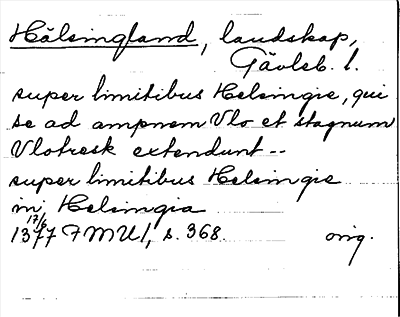 Hälsingland, landskap,
Gävleb. l.
super limitibus Helsingie, qui
se ad ampnem Vlo et stagnum
Vlotresk extendunt--
super limitibus Helsingie
in Helsingia
17/6
1377 FMU1, s. 368. orig.